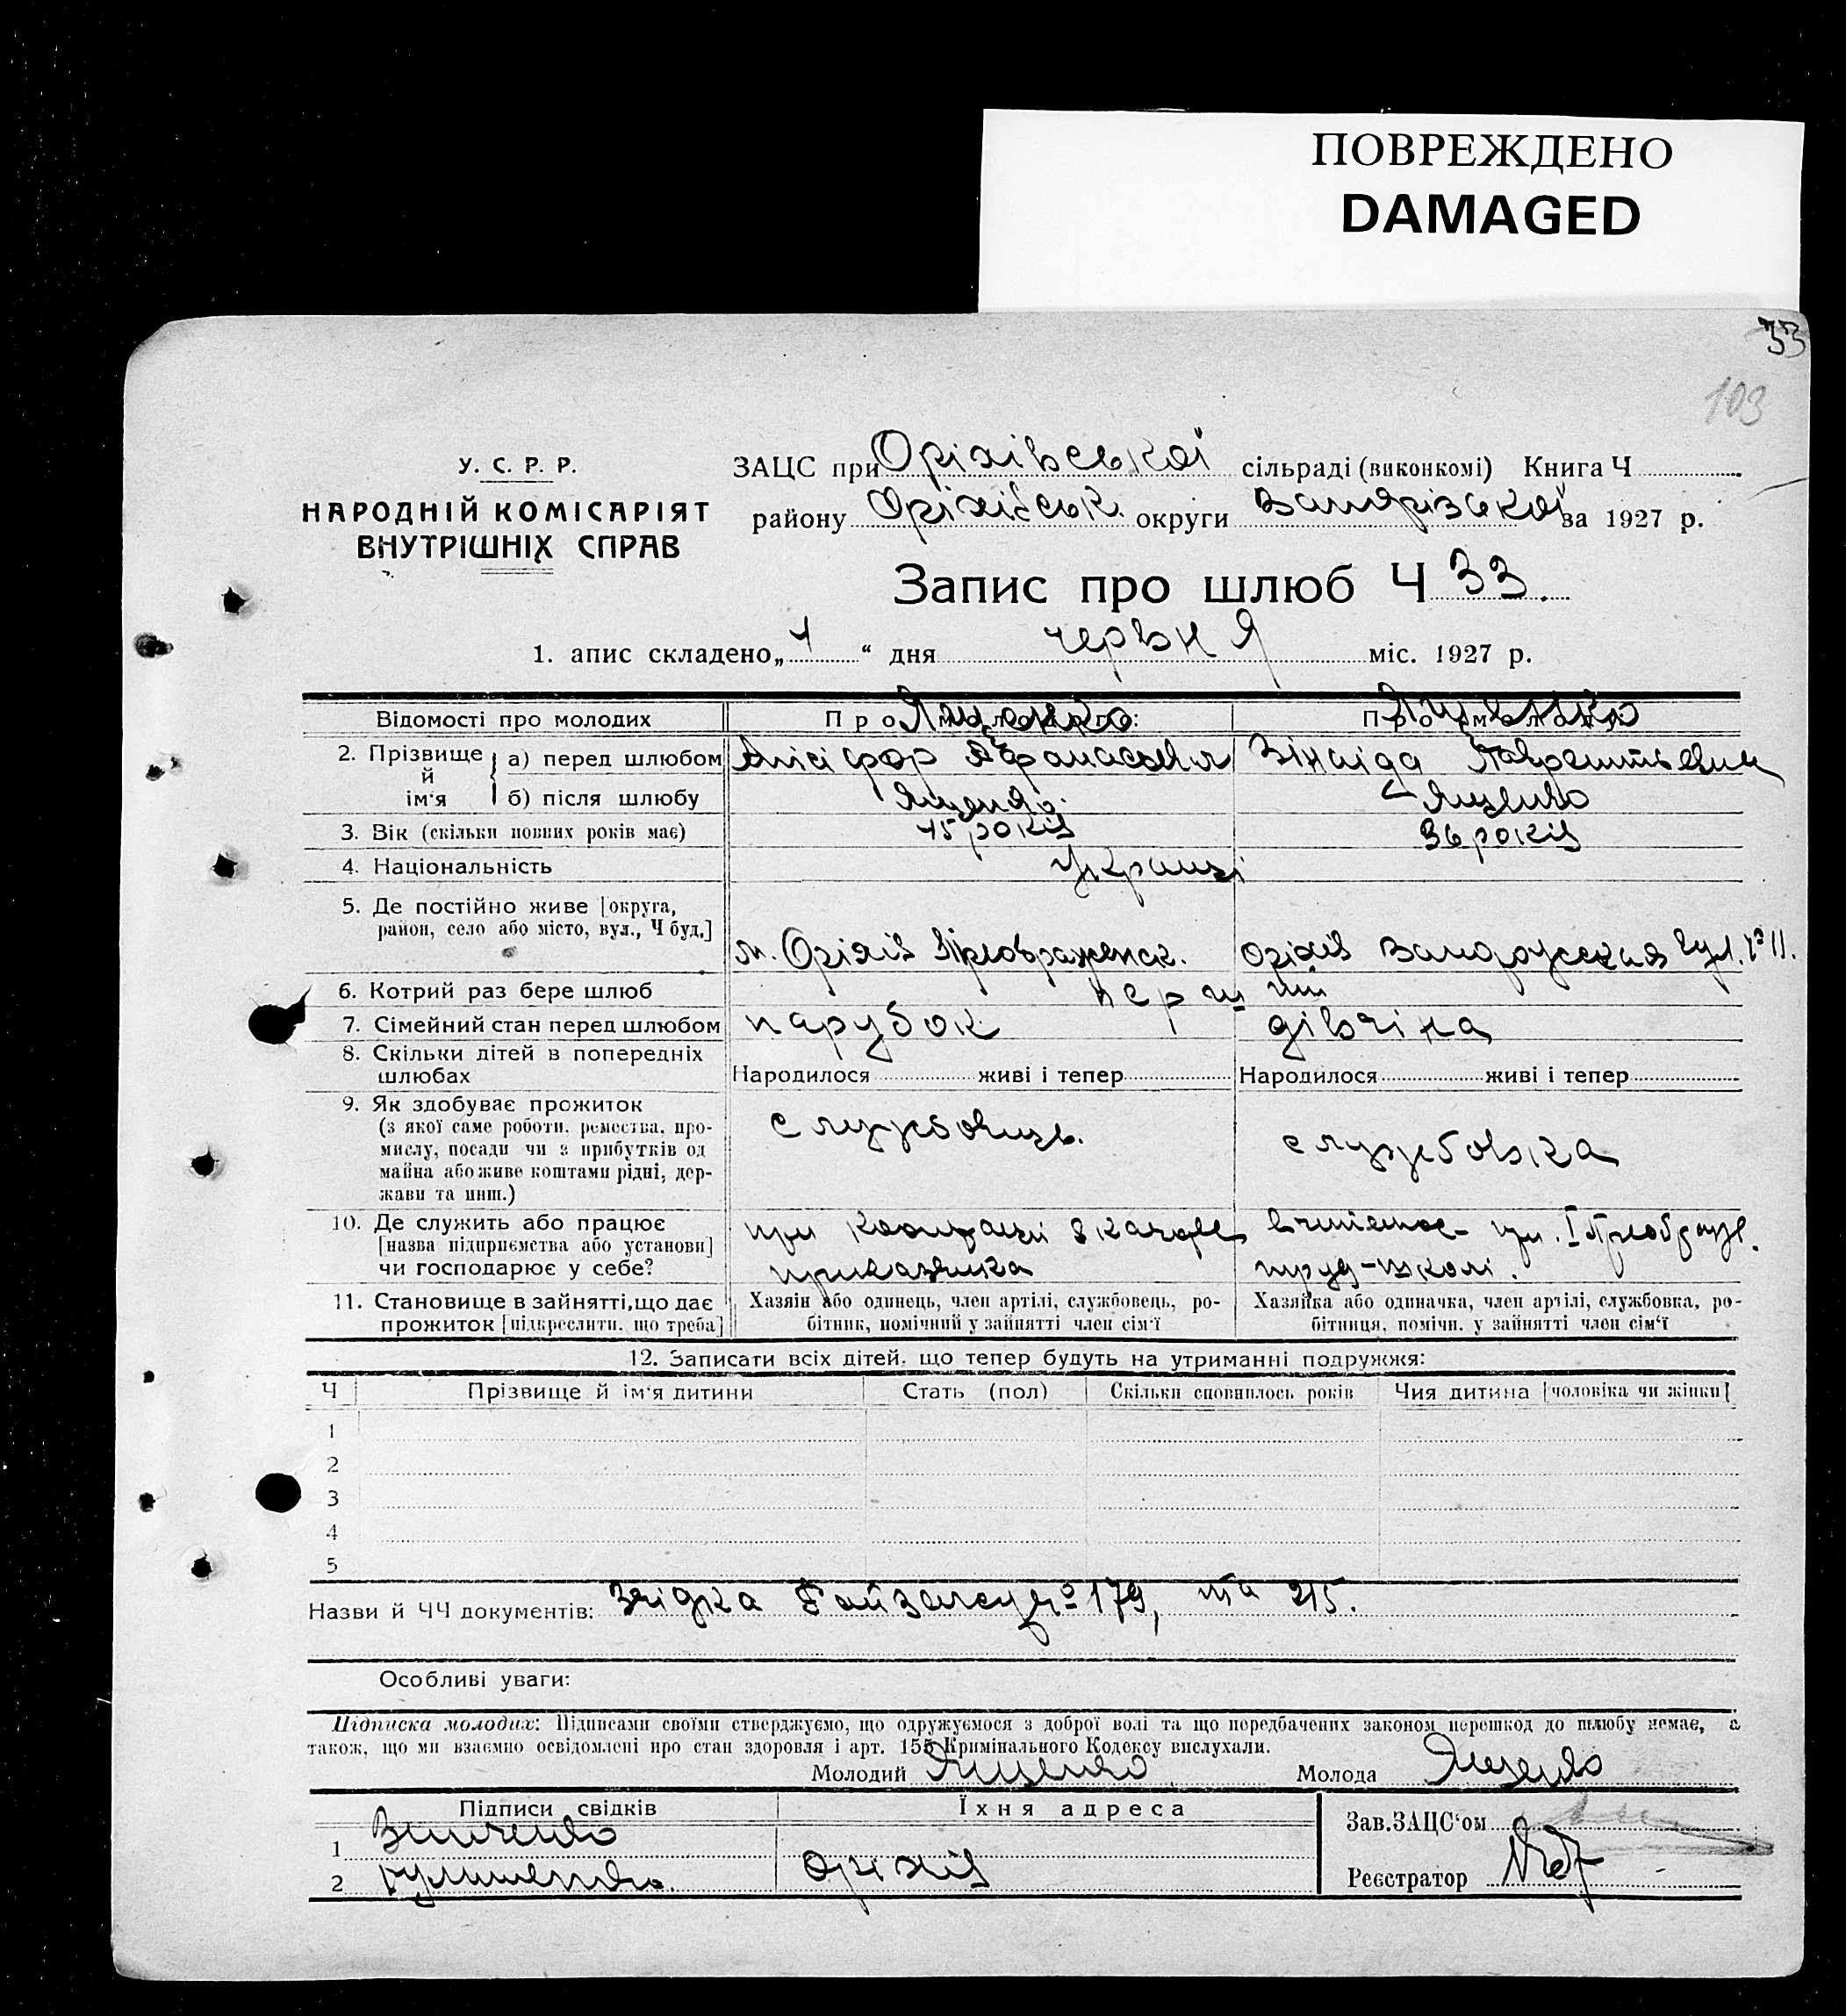 ПОВРЕЖДЕНО
DAMAGED
33
103
У. С. Р. Р.
НАРОДНІЙ КОМІСАРІЯТ
ВНУТРІШНІХ СПРАВ
ЗАЦС при Оріхівської сільраді (виконкомі) Книга Ч
району Оріхівськ. округи Запорізької за 1927 р.
Запис про шлюб Ч 33.
1. апис складено „ “ дня червня міс. 1927 р.
Відомості про молодих
Ященко
2. Прізвище й ім‘я
а) перед шлюбом Афанасович Зінаіда
б) після шлюбу Ященко Ященко
3. Вік (скільки повних років має) 45 років 36 років
4. Національність Українці
5. Де постійно живе [округа,
район, село або місто, вул., Ч буд.]
м. Оріхів Преображенск. Оріхів вул. № 11.
6. Котрий раз бере шлюб перший
7. Сімейний стан перед шлюбом парубок дівчіна
8. Скільки дітей в попередніх
шлюбах
Народилося живі і тепер Народилося живі і тепер
9. Як здобуває прожиток
(з якої саме роботи, ремества, про-
мислу, посади чи з прибутків од
майна або живе коштами рідні, дер-
жави та инш.)
службовець. службовка
10. Де служить або працює
[назва підприємства або установи]
чи господарює у себе?
при
приказчика
при І Преображ.
труд-школі.
11. Становище в зайнятті, що дає
прожиток [підкреслити, що треба]
Хазяїн або одинець, член артілі, службовець, ро-
бітник, помічний у зайнятті член сім‘ї
Хазяйка або одиначка, член артілі, службовка, ро-
бітниця, помічн. у зайнятті член сім‘ї
12. Записати всіх дітей, що тепер будуть на утриманні подружжя:
Ч Прізвище й ім‘я дитини Стать (пол) Скільки сповнилось років Чия дитина [чоловіка чи жінки]
1
2
3
4
5
Назви й ЧЧ документів: № 179, та 215.
Особливі уваги:
Підписка молодих: Підписами своїми стверджуємо, що одружуємося з доброї волі та що передбачених законом перешкод до шлюбу немає, а
також, що ми взаємно освідомлені про стан здоровля і арт. 155 Кримінального Кодексу вислухали.
Молодий Ященко Молода Ященко
Підписи свідків Їхня адреса
1
2 Оріхів
Зав. ЗАЦС‘ом
Реєстратор